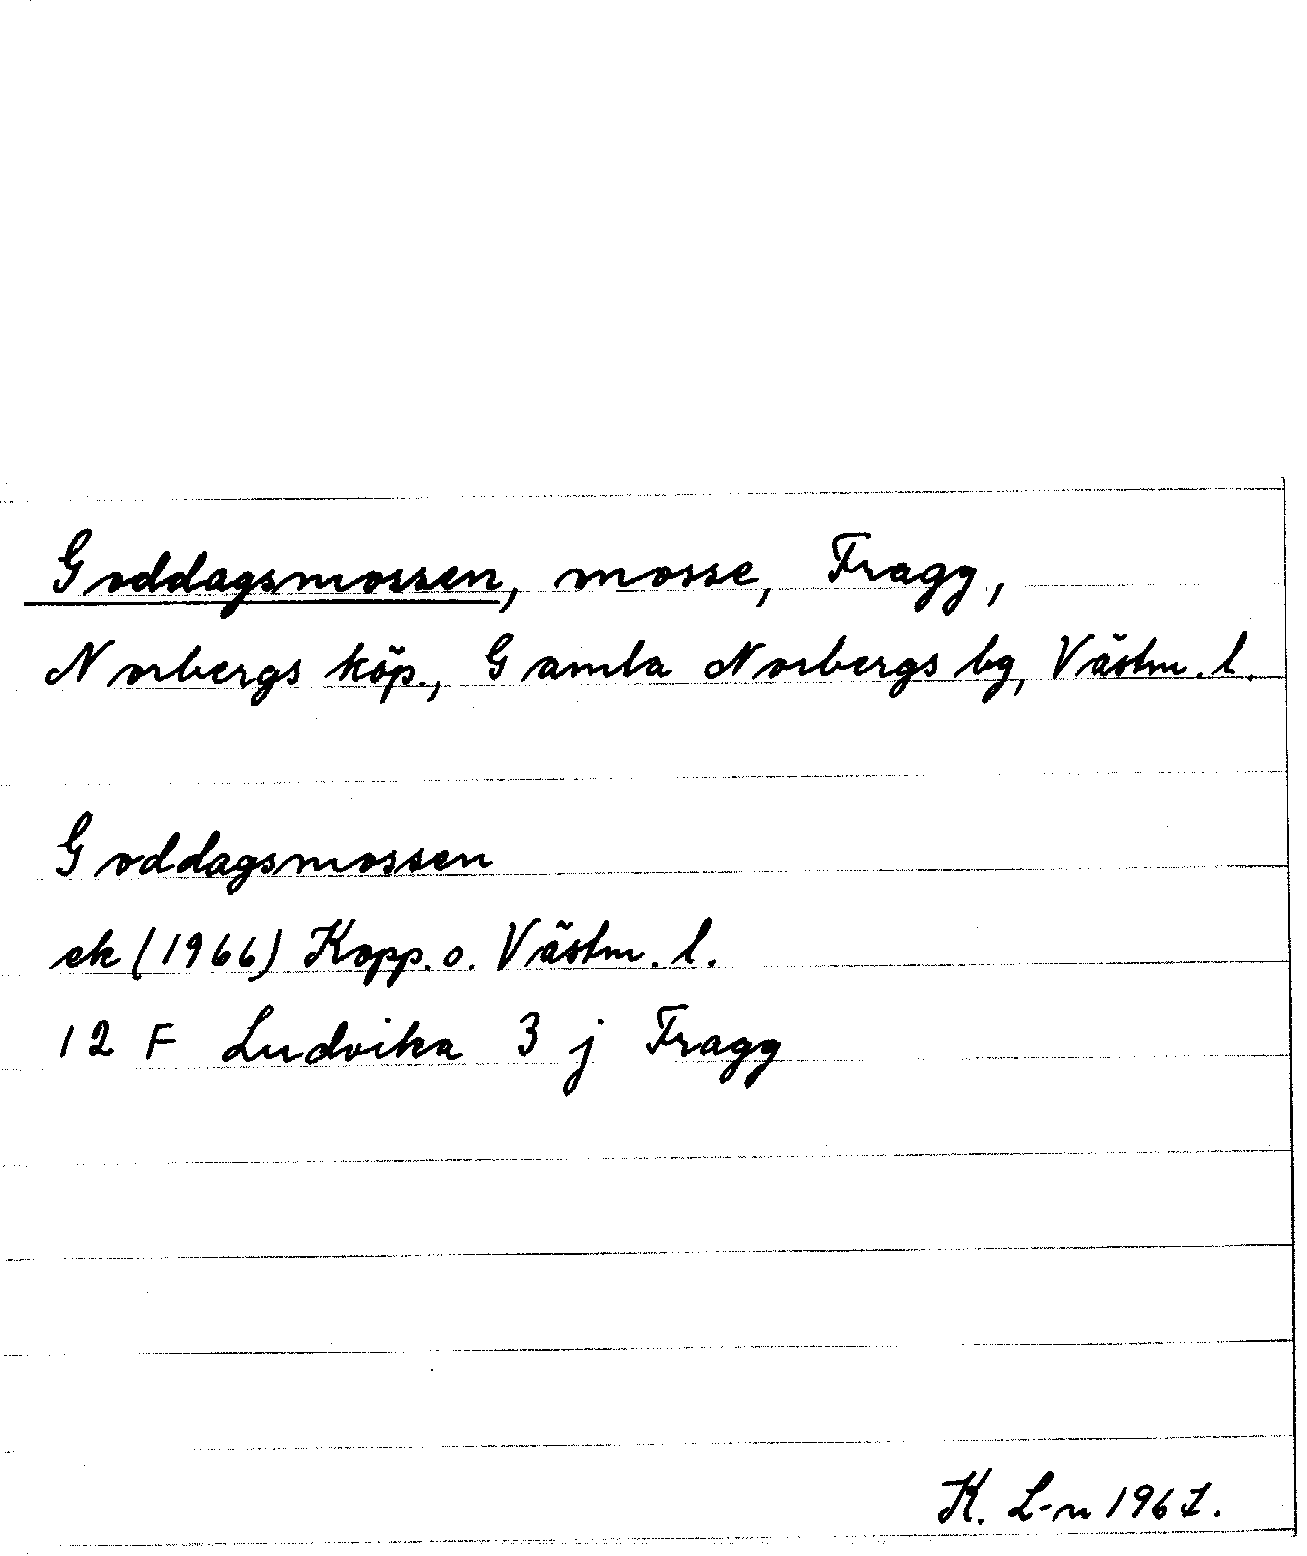 Goddagsmossen, mosse, Fragg,
Norbergs köp., Gamla Norbergs bg, Västm. l.
Goddagsmossen
ek (1966) Kopp. o. Västm. l.
12 F Ludvika 3 j Fragg
K. L-n 1967.